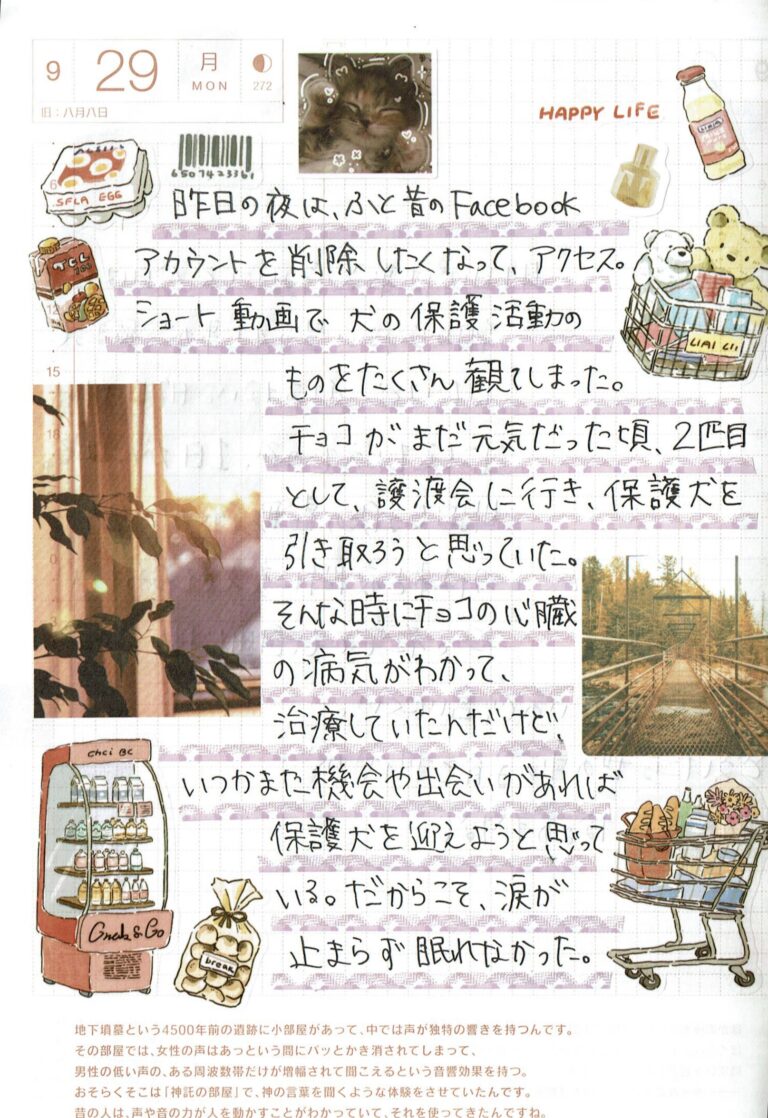 9
29
月
MON
272
旧：八月八日
HAPPY LIFE
SFLA EGG
6507423361
昨日の夜は、ふと昔のFacebook
アカウントを削除したくなって、アクセス。
ショート動画で犬の保護活動の
ものをたくさん観てしまった。
15
チョコがまだ元気だった頃、2匹目
として、譲渡会に行き、保護犬を
引き取ろうと思っていた。
そんな時にチョコの心臓
の病気がわかって、
治療していたんだけど、
いつかまた機会や出会いがあれば
保護犬を迎えようと思って
いる。だからこそ、涙が
止まらず眠れなかった。
Grab & Go
break
地下墳墓という4500年前の遺跡に小部屋があって、中では声が独特の響きを持つんです。
その部屋では、女性の声はあっという間にパッとかき消されてしまって、
男性の低い声の、ある周波数帯だけが増幅されて聞こえるという音響効果を持つ。
おそらくそこは「神託の部屋」で、神の言葉を聞くような体験をさせていたんです。
昔の人は、声や音の力が人を動かすことがわかっていて、それを使ってきたんですね。